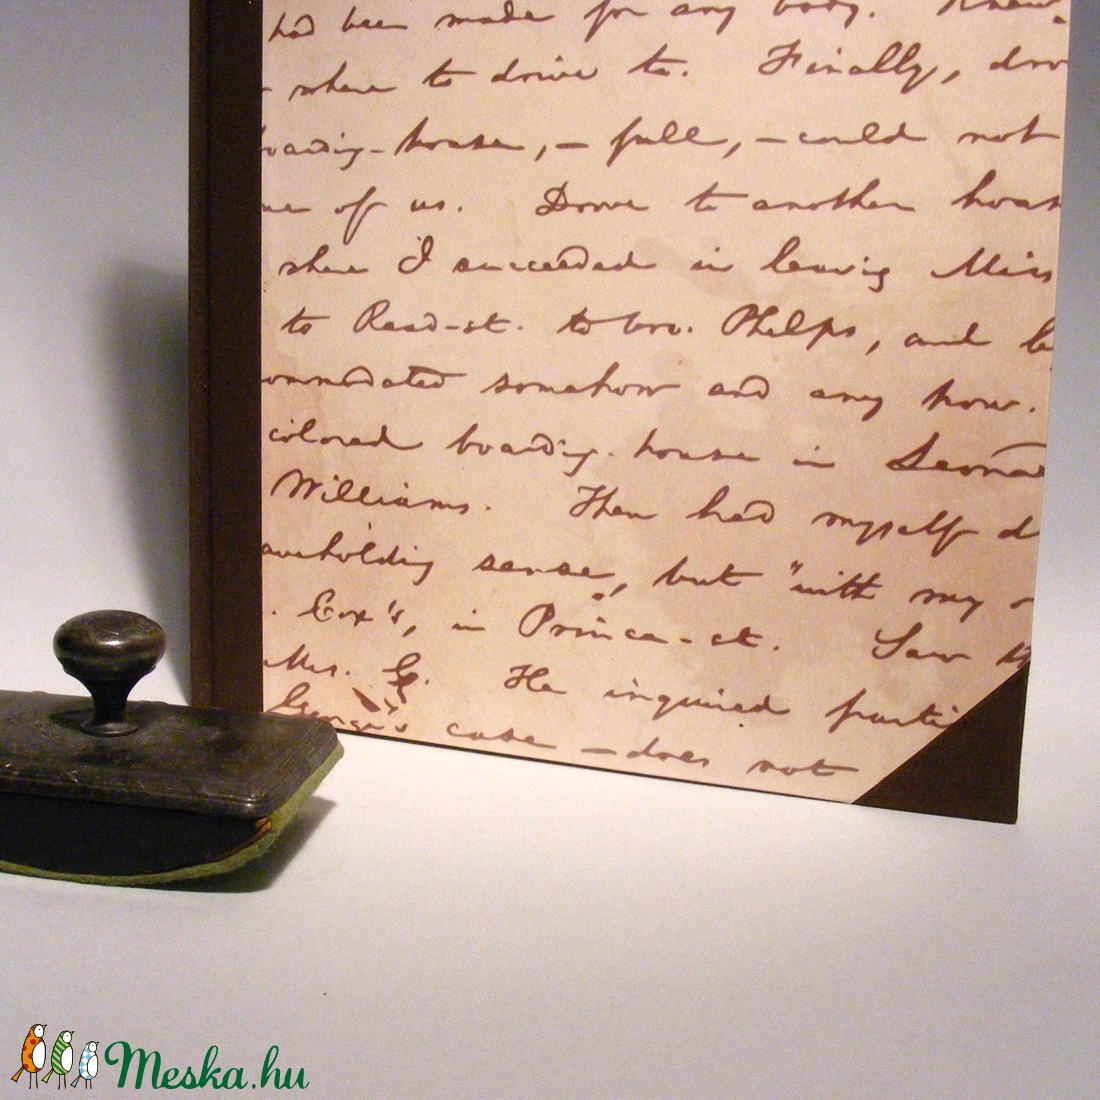 had been made for any body. Knew
where to drive to. Finally, dro
boarding-house, – full, – could not
me of us. Drove to another hous
where I succeeded in leaving Miss
to Read-st. to bro. Phelps, and
ommodated somehow and any how.
colored boarding-house in Leona
Williams. Then had myself d
aveholding sense, but "with my
. Cox's, in Prince-st. Saw
Mrs. G. He inquired parti
George's case – does not
Meska.hu